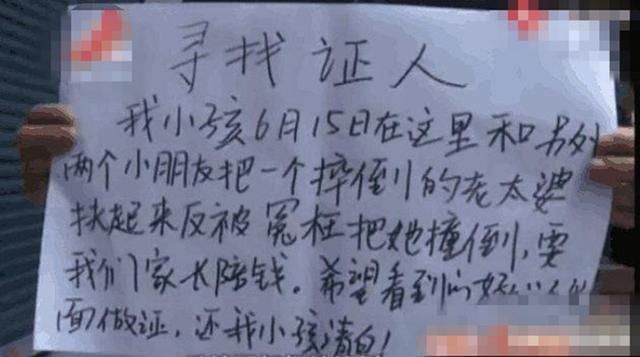 寻找证人
我小孩6月15日在这里和另外
两个小朋友把一个摔倒的老太婆
扶起来反被冤枉把她撞倒,要
我们家长陪钱。希望看到的好心人
面做证,还我小孩清白!